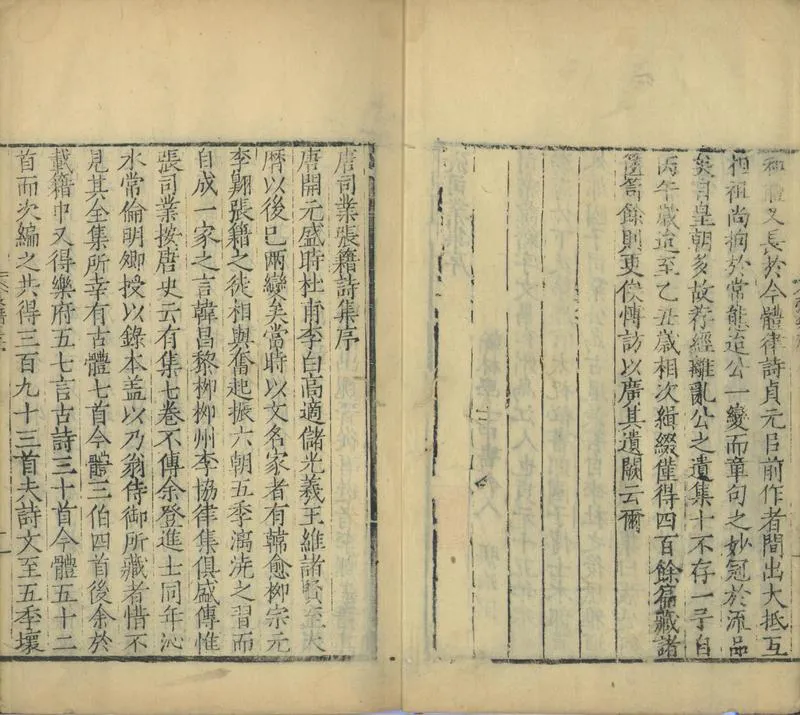 和體又長於今體律詩貞元已前作者間出大抵互
相祖尚拘於常態迨公一變而章句之妙冠於流品
矣自皇朝多故荐經離亂公之遺集十不存一予自
丙午歲迨至乙丑歲相次緝綴僅得四百餘篇藏諸
篋笥餘則更俟博訪以廣其遺闕云爾
唐司業張籍詩集序
唐開元盛時杜甫李白高適儲光羲王維諸賢至大
曆以後已兩變矣當時以文名家者有韓愈柳宗元
李翺張籍之徒相與奮起振六朝五季漓洗之習而
自成一家之言韓昌黎柳柳州李協律集俱盛傳惟
張司業按唐史云有集七卷不傳余登進士同年沁
水常倫明卿授以錄本蓋以乃翁侍御所藏者惜不
見其全集所幸有古體七首今體三伯四首後余於
載籍中又得樂府五七言古詩三十首今體五十二
首而次編之共得三百九十三首夫詩文至五季壞